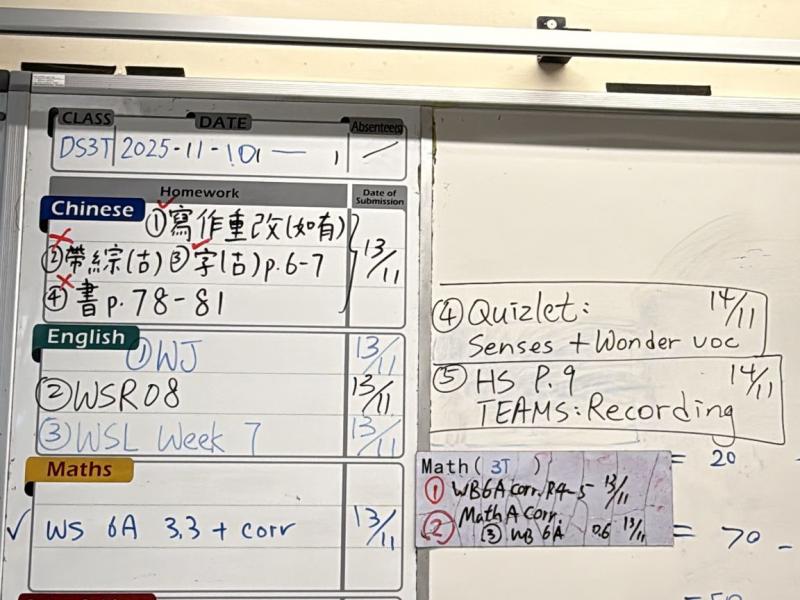 CLASS DATE Absentees
DS3T 2025-11-10
Homework Date of Submission
Chinese ①寫作重改(如有)
②帶綜(古) ③字(古)p.6-7 13/11
④書p.78-81
English ①WJ 13/11
②WSR08 13/11
③WSL Week 7 13/11
Maths
WS 6A 3.3 + corr 13/11
④ Quizlet: 14/11
Senses + Wonder voc
⑤ HS P.9 14/11
TEAMS: Recording
Math( 3T )
① WB6A corr. P.4-5 13/11
② Math A corr.
③ WB 6A 13/11
= 20
= 70 -
= 50